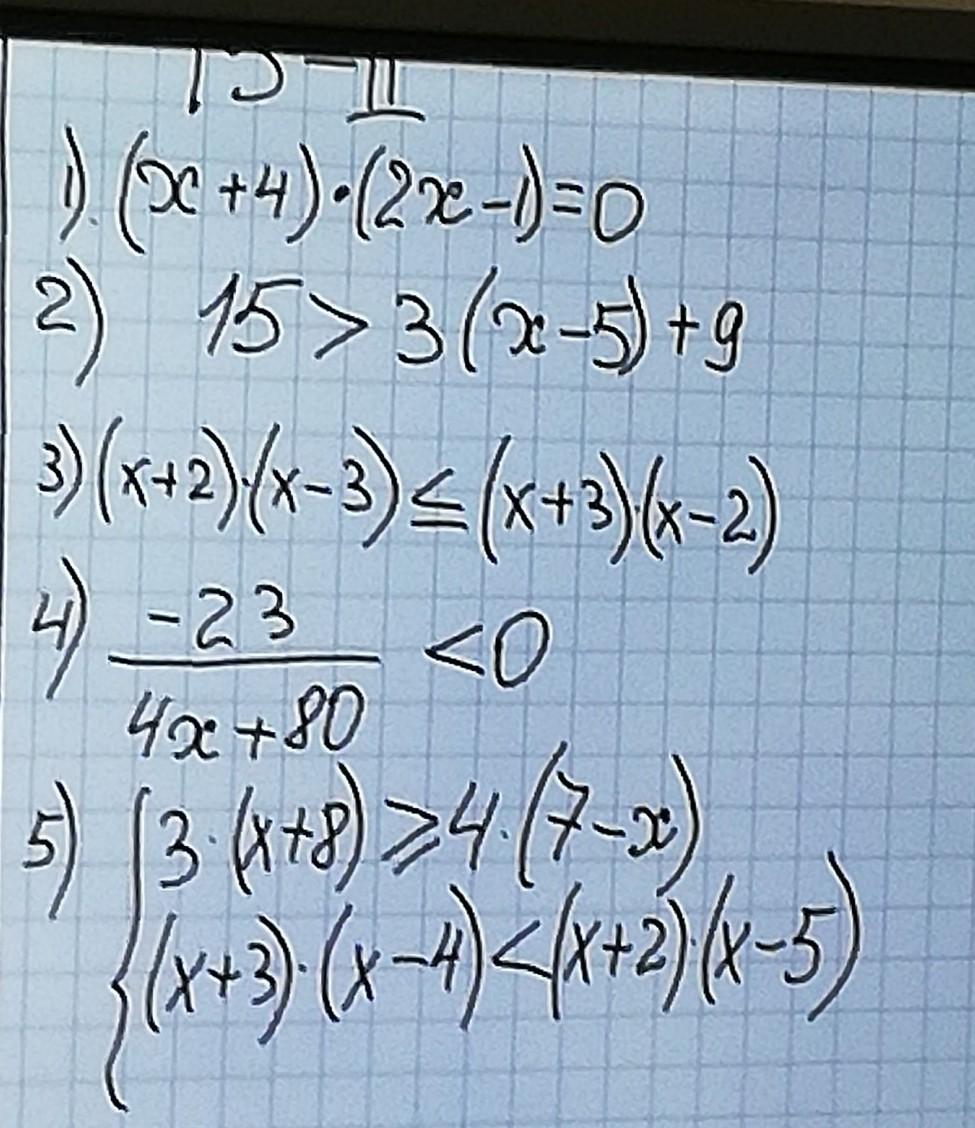 1). (x+4)·(2x-1)=0
2) 15 > 3(x-5)+9
3) (x+2)·(x-3) ≤ (x+3)·(x-2)
4) -23
4x+80 <0
5) { 3·(x+8) ≥ 4·(7-x)
(x+3)·(x-4) < (x+2)·(x-5)